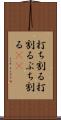 打ち割る打
割るぶち割
る